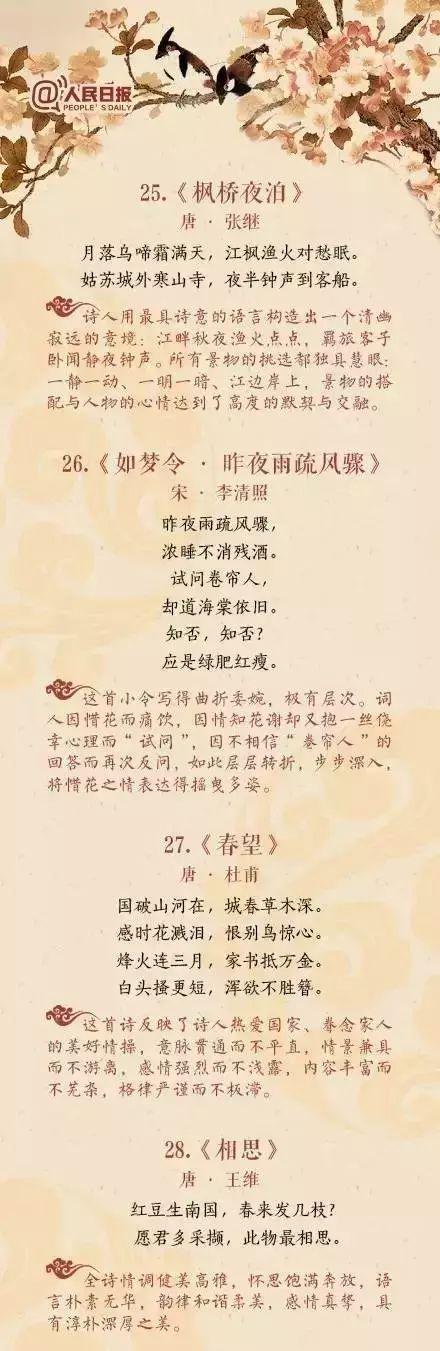 @人民日报
PEOPLE'S DAILY
25.《枫桥夜泊》
唐 · 张继
月落乌啼霜满天，江枫渔火对愁眠。
姑苏城外寒山寺，夜半钟声到客船。
诗人用最具诗意的语言构造出一个清幽
寂远的意境：江畔秋夜渔火点点，羁旅客子
卧闻静夜钟声。所有景物的挑选都独具慧眼：
一静一动、一明一暗、江边岸上，景物的搭
配与人物的心情达到了高度的默契与交融。
26.《如梦令 · 昨夜雨疏风骤》
宋 · 李清照
昨夜雨疏风骤，
浓睡不消残酒。
试问卷帘人，
却道海棠依旧。
知否，知否？
应是绿肥红瘦。
这首小令写得曲折委婉，极有层次。词
人因惜花而痛饮，因情知花谢却又抱一丝侥
幸心理而“试问”，因不相信“卷帘人”的
回答而再次反问，如此层层转折，步步深入，
将惜花之情表达得摇曳多姿。
27.《春望》
唐 · 杜甫
国破山河在，城春草木深。
感时花溅泪，恨别鸟惊心。
烽火连三月，家书抵万金。
白头搔更短，浑欲不胜簪。
这首诗反映了诗人热爱国家、眷念家人
的美好情操，意脉贯通而不平直，情景兼具
而不游离，感情强烈而不浅露，内容丰富而
不芜杂，格律严谨而不板滞。
28.《相思》
唐 · 王维
红豆生南国，春来发几枝？
愿君多采撷，此物最相思。
全诗情调健美高雅，怀思饱满奔放，语
言朴素无华，韵律和谐柔美，感情真挚，具
有淳朴深厚之美。